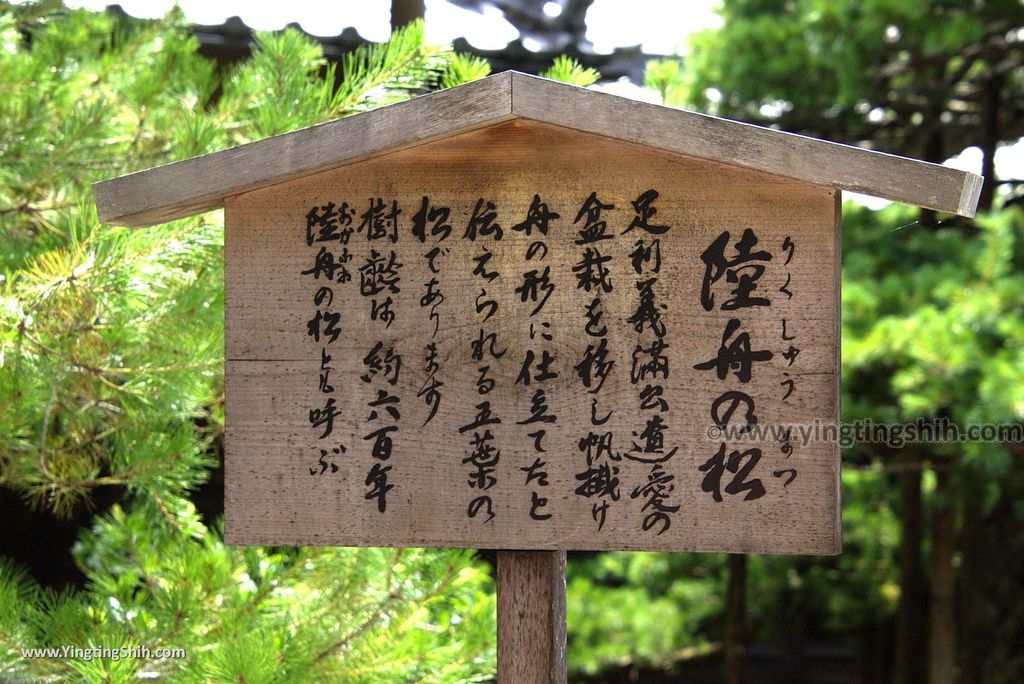 陸舟の松
りくしゅう まつ
足利義満公遺愛の
盆栽を移し帆掛け
舟の形に仕立てたと
伝えられる五葉の
松であります
樹齢は約六百年
おかふね
陸舟の松とも呼ぶ
©www.yingtingshih.com
www.YingtingShih.com